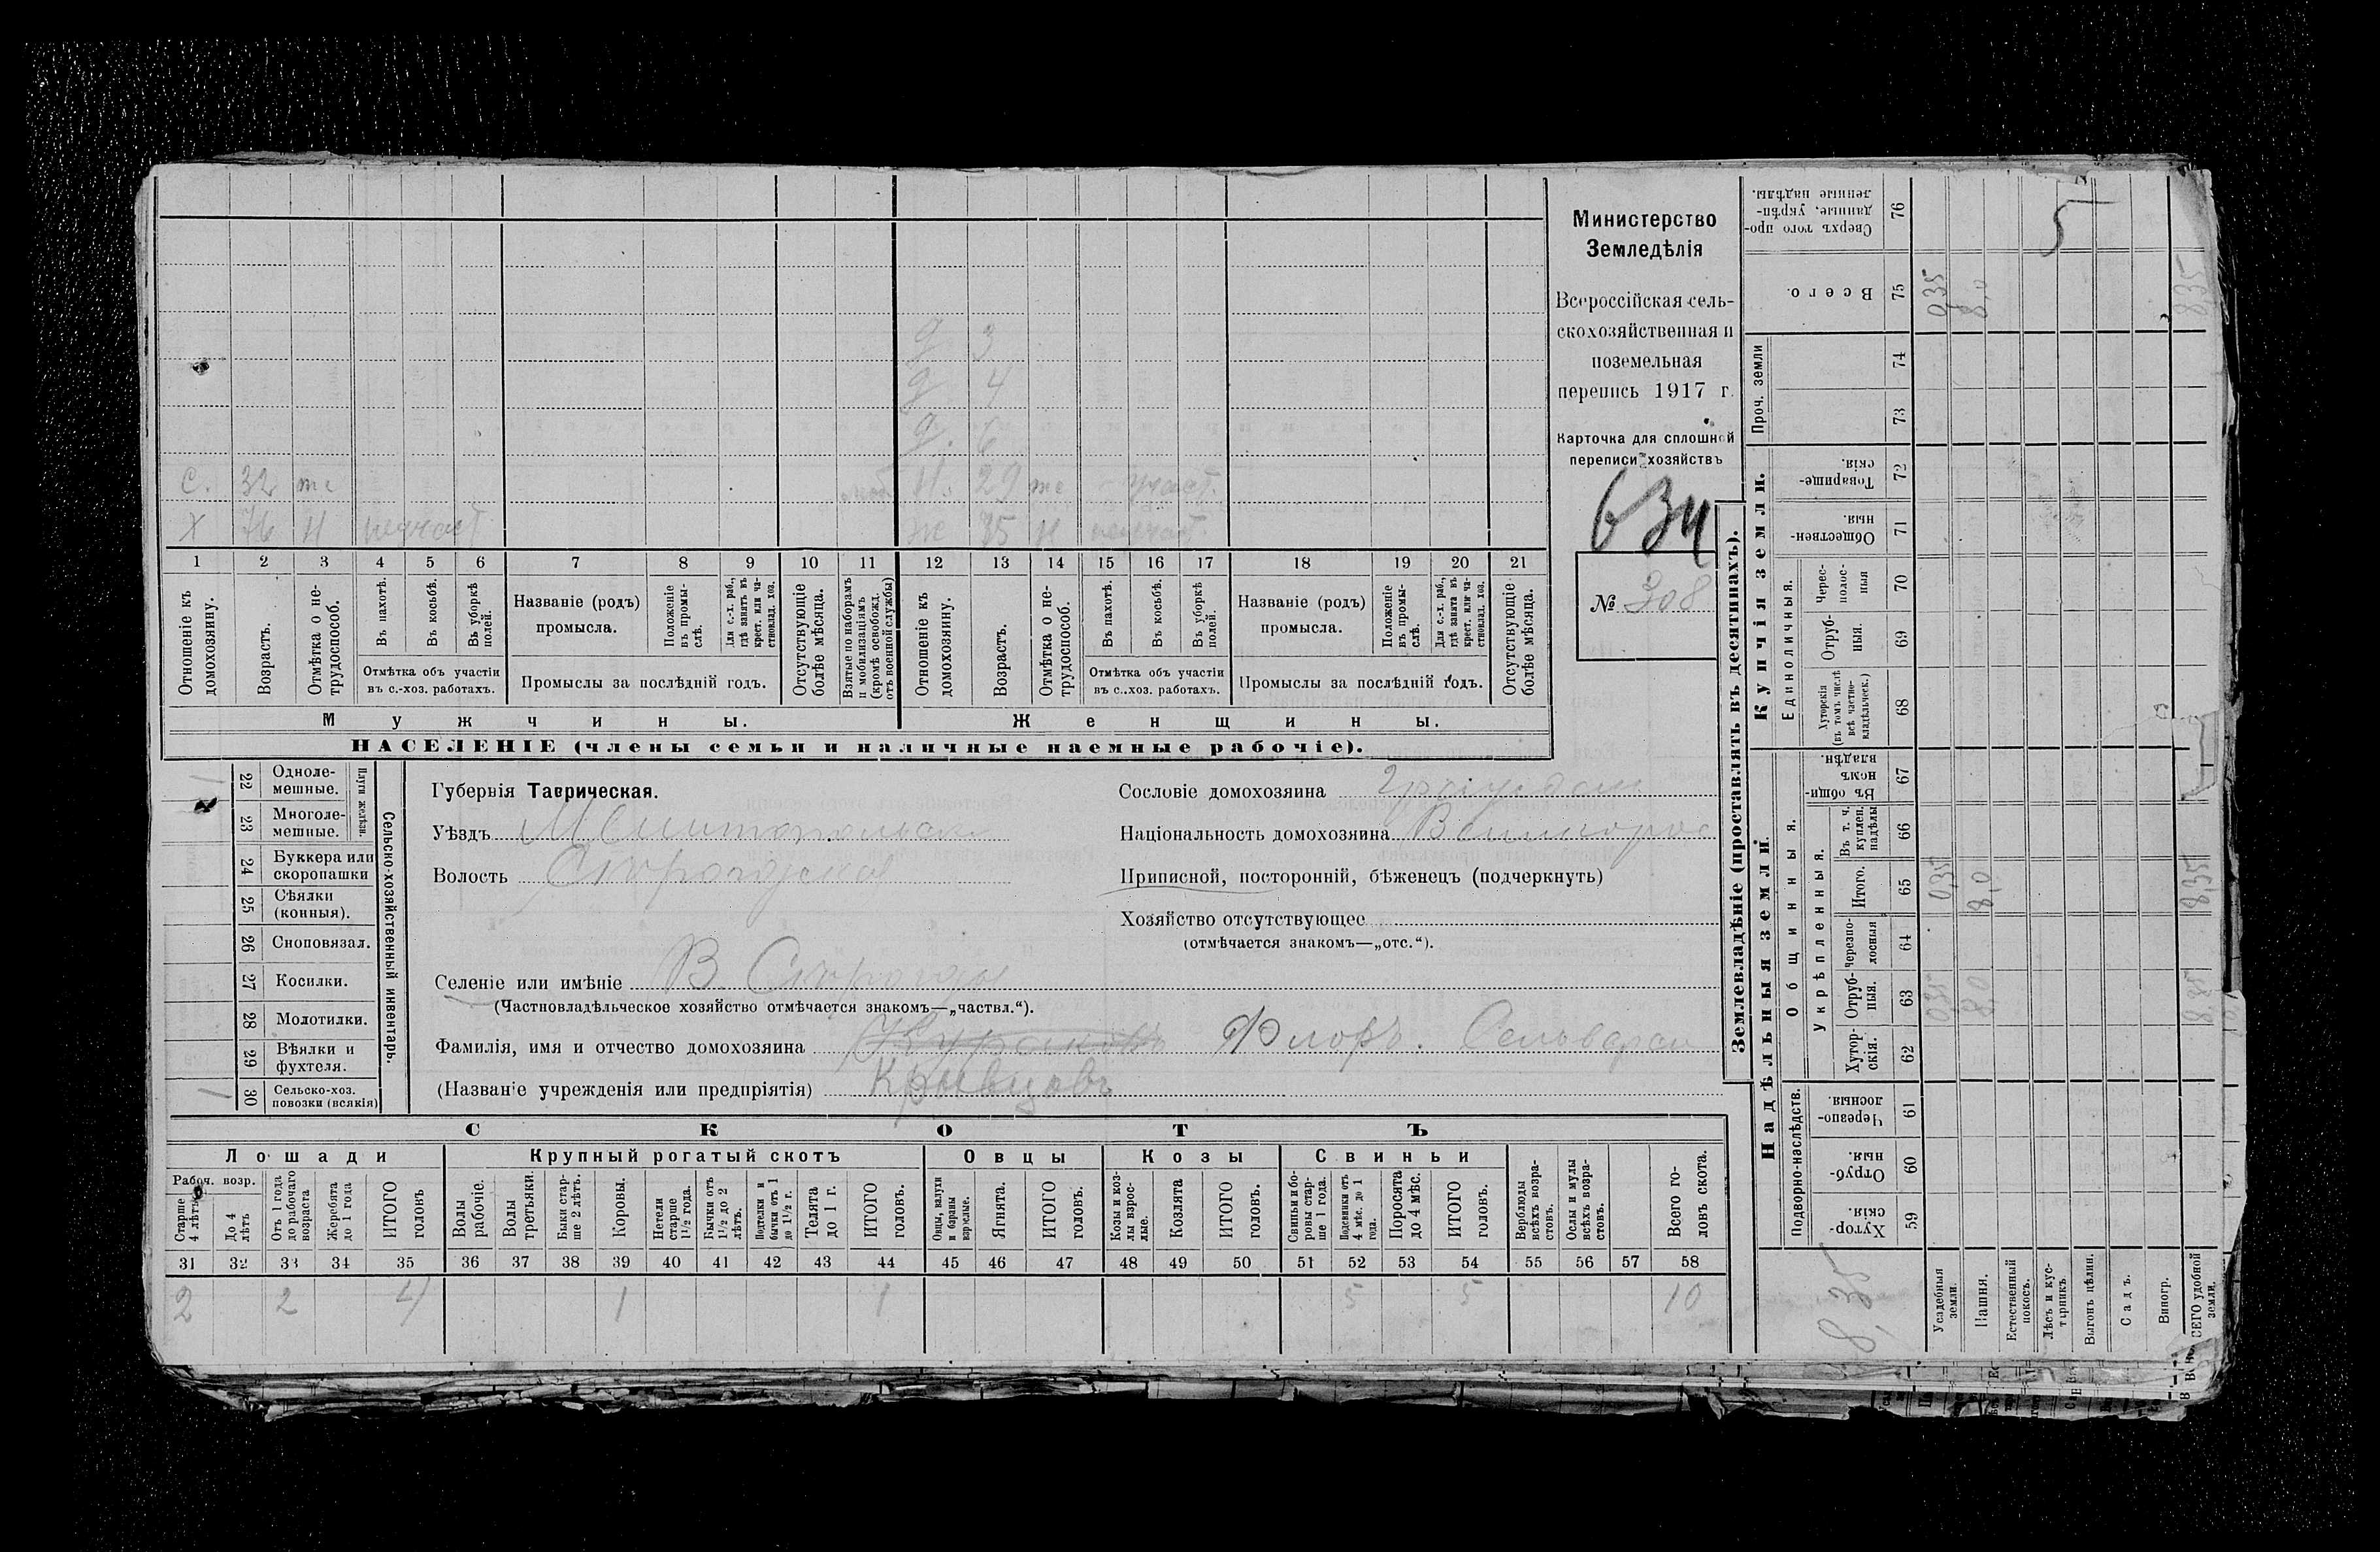 Министерство
Земледѣлія
Всероссійская сель-
скохозяйственная и
поземельная
перепись 1917 г.
Карточка для сплошной
переписи хозяйствъ
634
№ 308
д 3
д 4
д. 6
С. 32 тс Н. 29 тс участ.
Х 76 Н неучаст Ж 75 Н неучаст.
1 2 3 4 5 6 7 8 9 10 11 12 13 14 15 16 17 18 19 20 21
Отношеніе къ домохозяину.
Возрастъ.
Отмѣтка о не-трудоспособ.
Въ пахотѣ.
Въ косьбѣ.
Въ уборкѣ полей.
Отмѣтка объ участіи
въ с.-хоз. работахъ.
Названіе (родъ)
промысла.
Положеніе въ промы-слѣ.
Для с.-х. раб., гдѣ занятъ въ крест. или ча-стновлад. хоз.
Промыслы за послѣдній годъ.
Отсутствующіе болѣе мѣсяца.
Взятые по наборамъ и мобилизаціямъ (кромѣ освобожд. отъ военной службы)
Отношеніе къ домохозяину.
Возрастъ.
Отмѣтка о не-трудоспособ.
Въ пахотѣ.
Въ косьбѣ.
Въ уборкѣ полей.
Отмѣтка объ участіи
въ с.-хоз. работахъ.
Названіе (родъ)
промысла.
Положеніе въ промы-слѣ.
Для с.-х. раб., гдѣ занята въ крест. или ча-стновлад. хоз.
Промыслы за послѣдній годъ.
Отсутствующіе болѣе мѣсяца.
Мужчины. Женщины.
НАСЕЛЕНІЕ (члены семьи и наличные наемные рабочіе).
Сельско-хозяйственный инвентарь.
Плуги желѣзн.
1 22 Одноле-мешные.
23 Многоле-мешные.
24 Буккера или скоропашки
25 Сѣялки (конныя).
26 Сноповязал.
27 Косилки.
28 Молотилки.
29 Вѣялки и фухтеля.
1 30 Сельско-хоз. повозки (всякія)
Губернія Таврическая.
Уѣздъ Мелитопольск
Волость
Селеніе или имѣніе В.
(Частновладѣльческое хозяйство отмѣчается знакомъ—„частвл.“).
Фамилія, имя и отчество домохозяина Флоръ.
(Названіе учрежденія или предпріятія) Крывцовъ
Сословіе домохозяина
Національность домохозяина Великорос
Приписной, посторонній, бѣженецъ (подчеркнуть)
Хозяйство отсутствующее
(отмѣчается знакомъ—„отс.“).
СКОТЪ
Лошади Крупный рогатый скотъ Овцы Козы Свиньи
Рабоч. возр.
Старше 4 лѣтъ
До 4 лѣтъ
Отъ 1 года до рабочаго возраста
Жеребята до 1 года
ИТОГО головъ
Волы рабочіе.
Волы третьяки.
Быки стар-ше 2 лѣтъ.
Коровы.
Нетели старше 1½ года.
Бычки отъ 1½ до 2 лѣтъ.
Подтелки и бычки отъ 1 до 1½ г.
Телята до 1 г.
ИТОГО головъ.
Овцы, валухи и бараны взрослые.
Ягнята.
ИТОГО головъ.
Козы и коз-лы взрос-лые.
Козлята
ИТОГО головъ.
Свиньи и бо-ровы стар-ше 1 года.
Подсвинки отъ 4 мѣс. до 1 года.
Поросята до 4 мѣс.
ИТОГО головъ.
Верблюды всѣхъ возра-стовъ.
Ослы и мулы всѣхъ возра-стовъ.
Всего го-ловъ скота.
31 32 33 34 35 36 37 38 39 40 41 42 43 44 45 46 47 48 49 50 51 52 53 54 55 56 57 58
2 2 4 1 1 5 5 10
Землевладѣніе (проставлять въ десятинахъ).
Надѣльныя земли.
Купчія земли.
Проч. земли
Подворно-наслѣдств.
Общинныя.
Укрѣпленныя.
Единоличныя.
59 Хутор-скія.
60 Отруб-ныя.
61 Черезпо-лосныя.
62 Хутор-скія.
63 Отруб-ныя. 0,35 8,0 8,35
64 Черезпо-лосныя
65 Итого. 0,35 8,0 8,35
66 Въ т. ч. куплен. надѣлы
67 Въ общи-номъ владѣн.
68 Хуторскія (въ томъ числѣ всѣ частно-владѣльческ.)
69 Отруб-ныя.
70 Черес-полос-ныя
71 Обществен-ныя.
72 Товарище-скія.
73
74
75 Всего. 0,35 8,0 8,35
76 Сверхъ того про-данные, укрѣп-ленные надѣлы.
5
8,35
Усадебныя земли.
Пашня.
Естественный покосъ.
Лѣсъ и кус-тарникъ.
Выгонъ цѣлин.
Садъ.
Виногр.
ВСЕГО удобной земли.